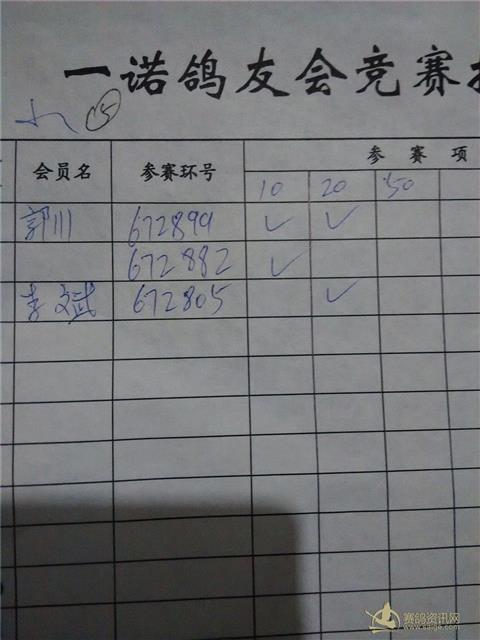 一诺鸽友会竞赛
15
参赛项
会员名 参赛环号
10 20 50
郭川 672899 ✓ ✓
672882 ✓
李斌 672805 ✓
赛鸽资讯网
www.saige.com